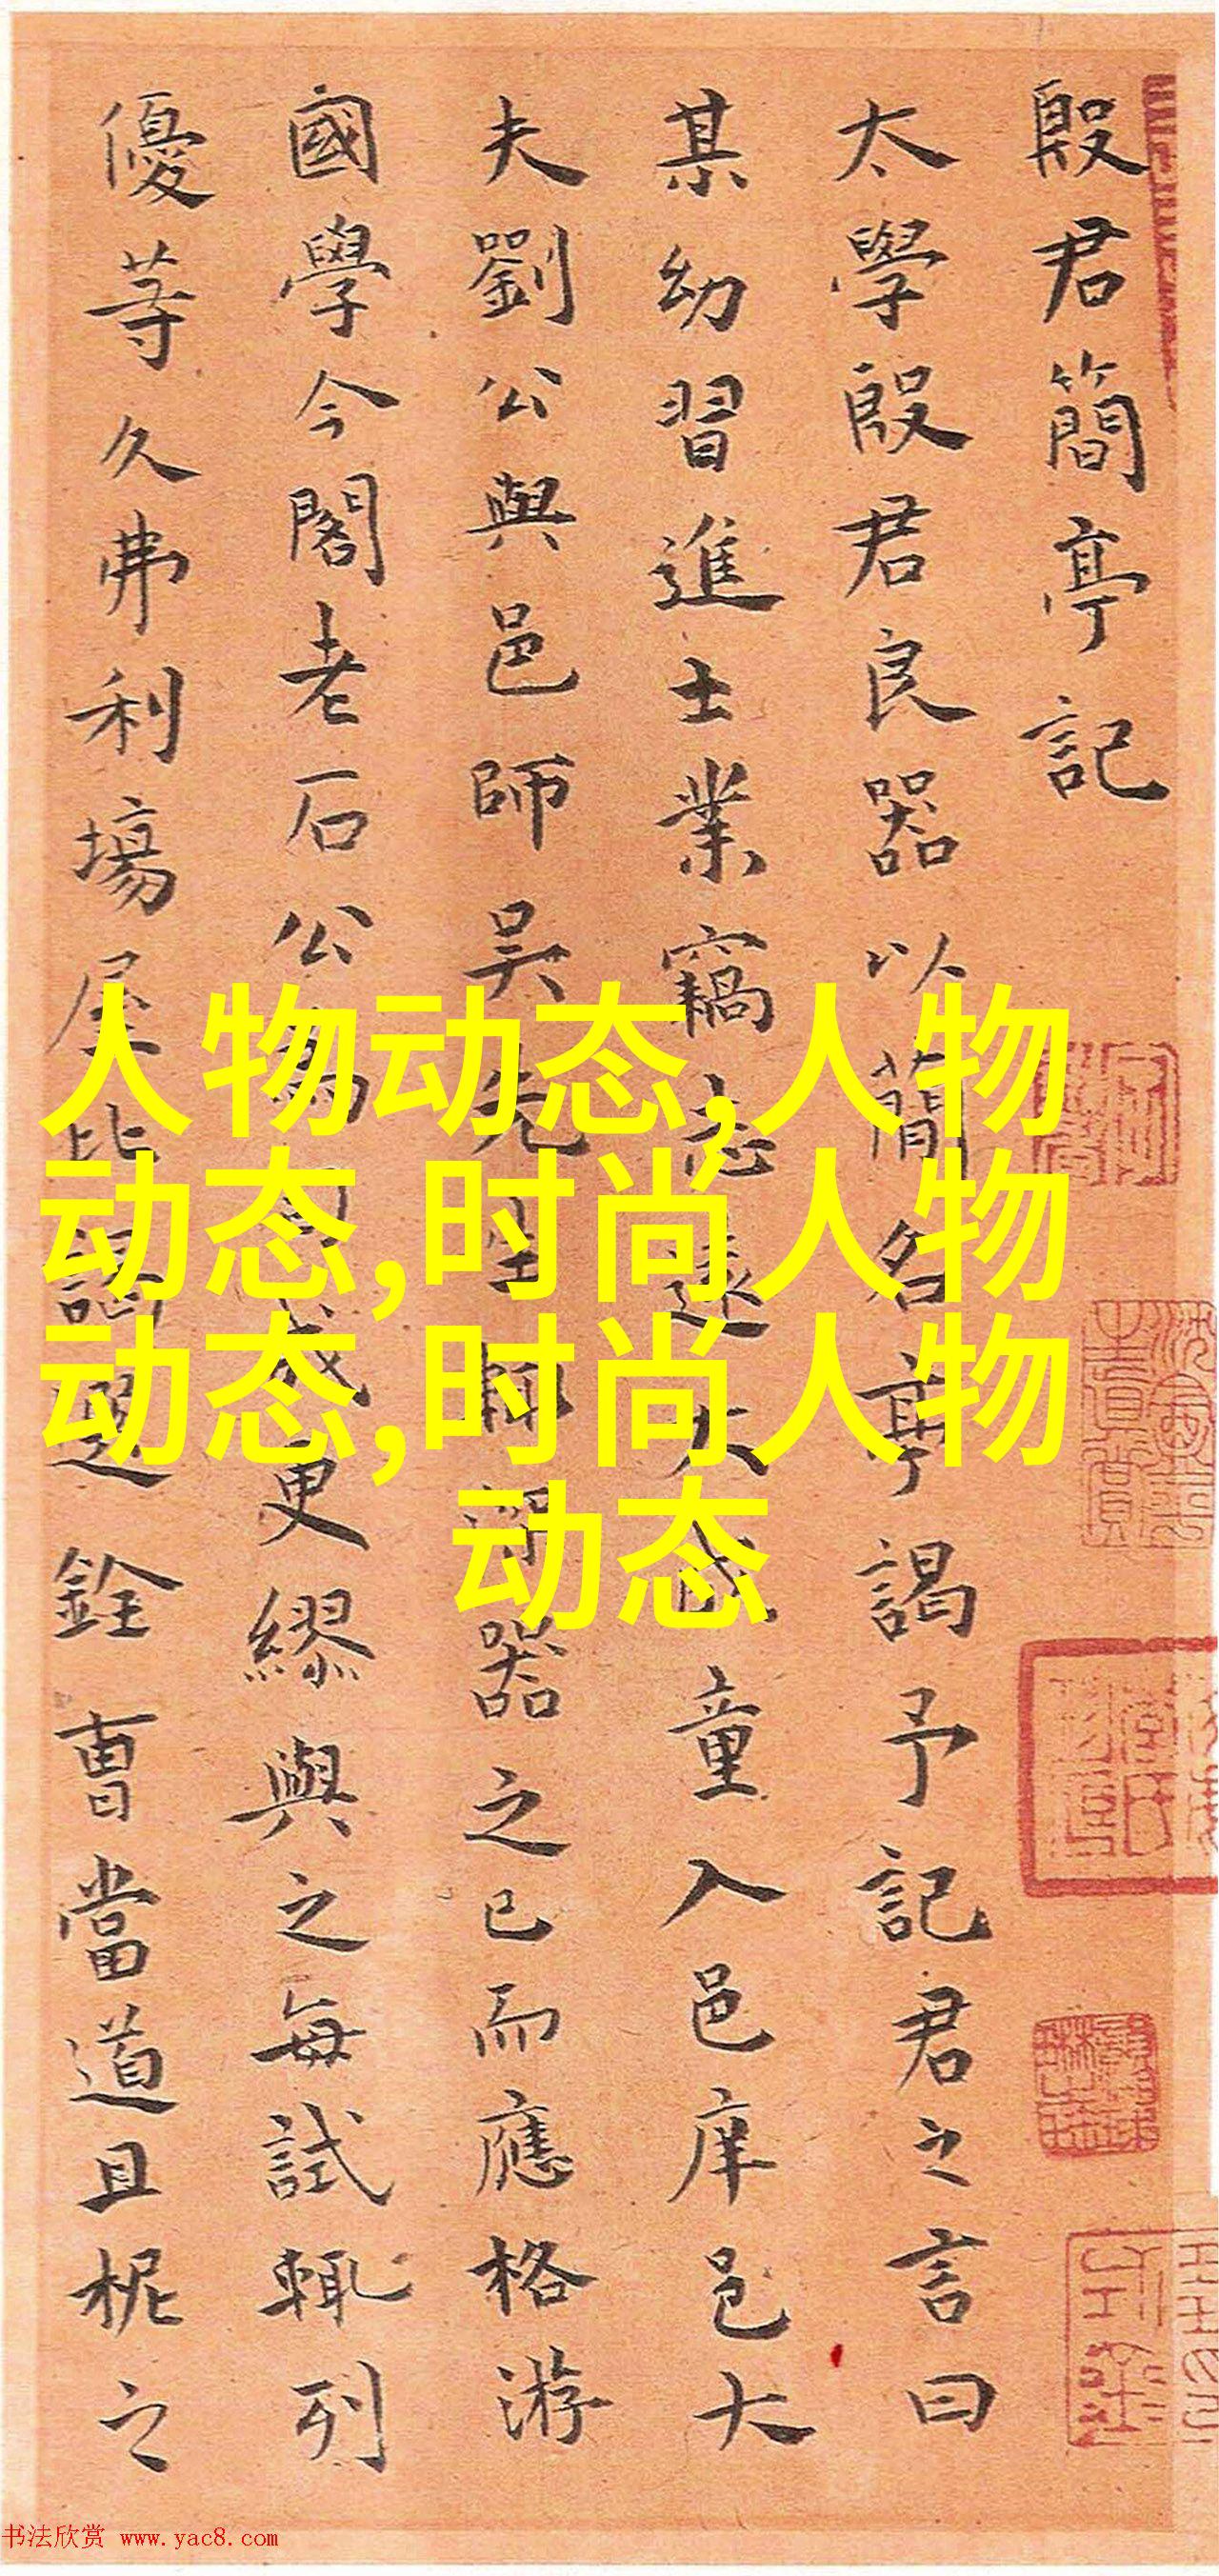 殷君簡亭記
太學殷君良器以簡名亭謁予記君之言曰
某幼習進士業竊志遠大成童入邑庠邑大
夫劉公與邑師吳先生輒器之已而應格游
國學今閣老石公為司成更繆與之每試輒列
優等久弗利場屋比謁選銓曹當道且柅之
人物动态,人物
动态,时尚人物
动态,时尚人物
动态
书法欣赏 www.yac8.com